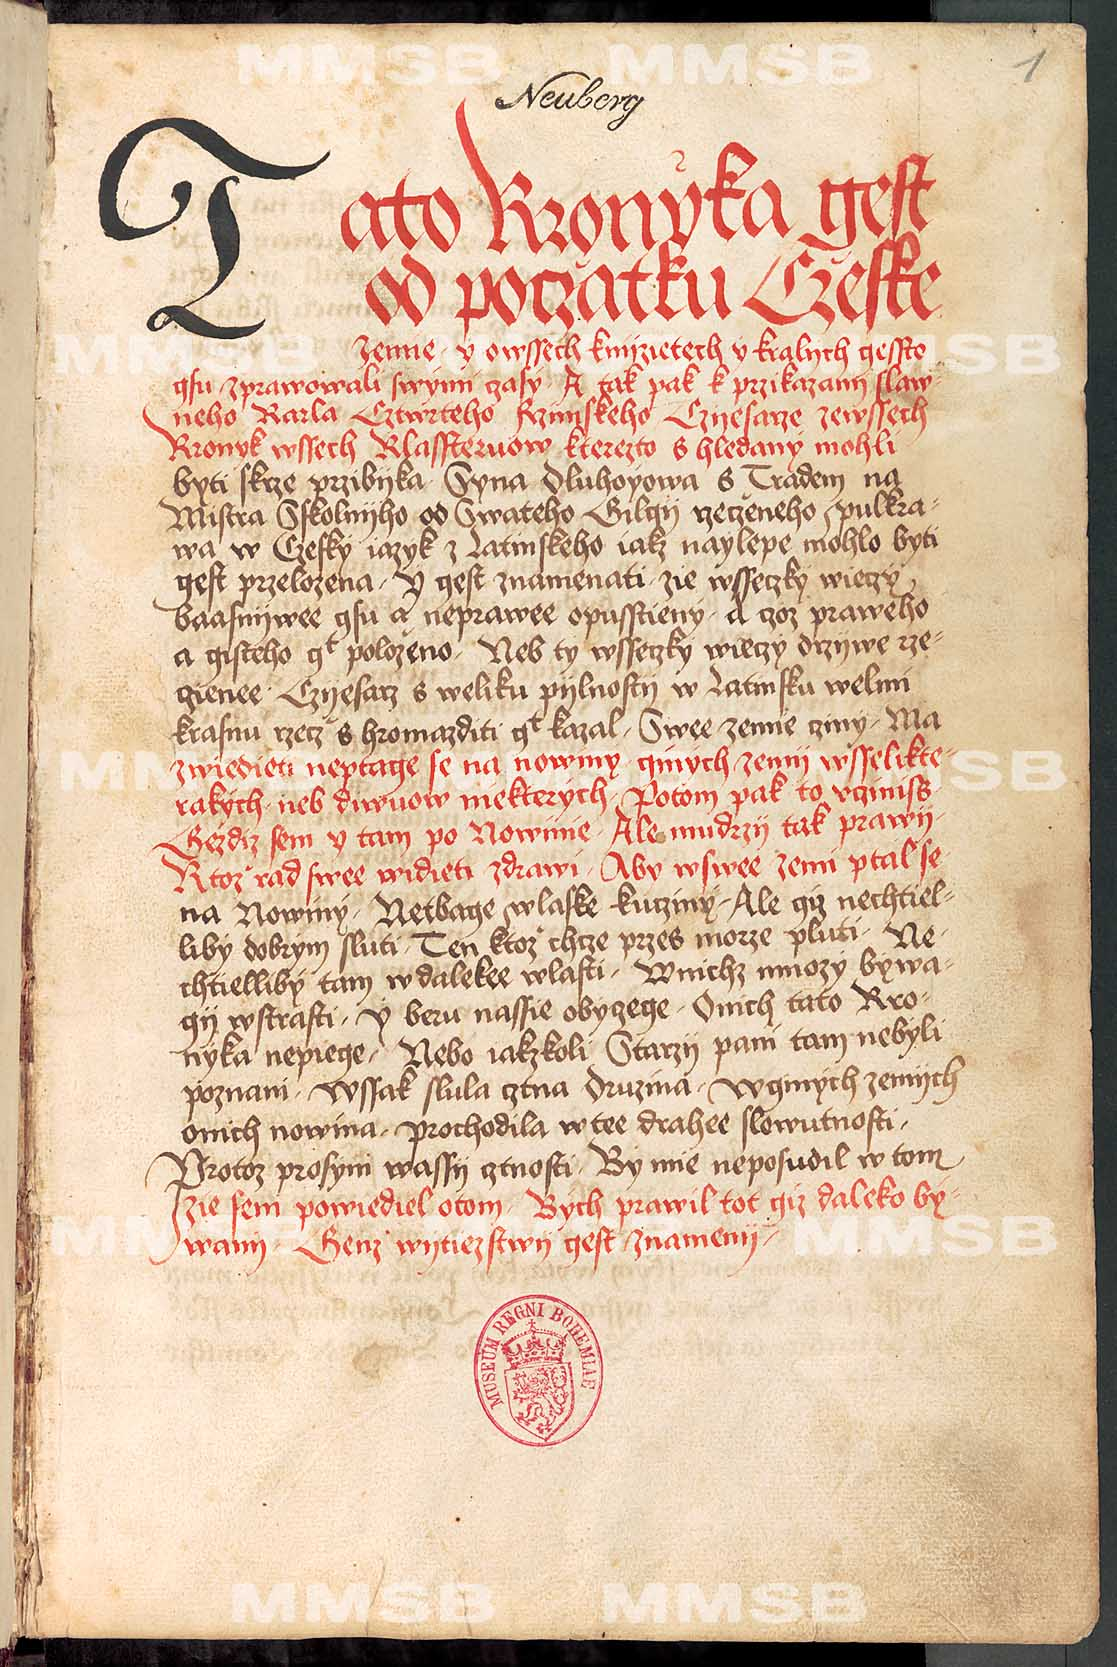 1
Neuberg
Tato Kronyka gest
od poczatku Czeske
zemie · y owssech knyzietech y kralych gessto
gsu zprawowali swymi czasy · A tak pak k przikazani slaw-
neho Karla Cztwrteho Rzimskeho Czyesarze zewssech
Kronyk wssech Klassteruow kterezto s hledany mohli
byti skrze przibijka Syna Dluhoyowa s Tradem na
Mistra Sskolnyho od Swateho Gilgij rzeczeneho pulkra-
wa w Czesky iazyk z Latinskeho iakz naylepe mohlo byti
gest przelozena · Y gest znamenati · zie wsseczky wieczy
baasnijwee gsu a neprawee opusstieny · a czoz praweho
a gisteho gt polozeno · Neb ty wsseczky wieczy drzijwe rze-
gienee · Czyesarz s weliku pijlnostij w Latinsku welmi
krasnu rzecz s hromazditi gt kazal · Swee zemie cziny · Ma
zwiedieti neptage se na nowiny ginych zemij wsselikte-
rakych neb diwuow niekterych · Potom pak to vcziniss
Gezdiz sem y tam po Nowinie · Ale mudrzij tak prawij
Ktoz rad swee widieti zdrawi · Aby wswee zemi ptal se
na Nowiny · Netbage wlaske kucziny · Ale giz nechtiel-
liby dobrym sluti · Ten ktoz chcze przes morze pluti · Ne-
chtielliby tam w dalekee wlasti · Wnichz mnozy bywa-
gij wstrasti · Y beru nassie obyczege · Onich tato Kro-
nyka nepiege · Nebo iakzkoli Starzij pani tam nebyli
poznani · Wssak slula cztna Druzina · Wginych zemijch
onich nowina · prochodila w tee drahee slowutnosti ·
Protoz prosym wassij cztnosti · By mie neposudil w tom
zie sem powiediel otom · Bych prawil tot giz daleko by-
wany · Genz wytiezstwij gest znamenij ·
MUSEUM REGNI BOHEMIAE